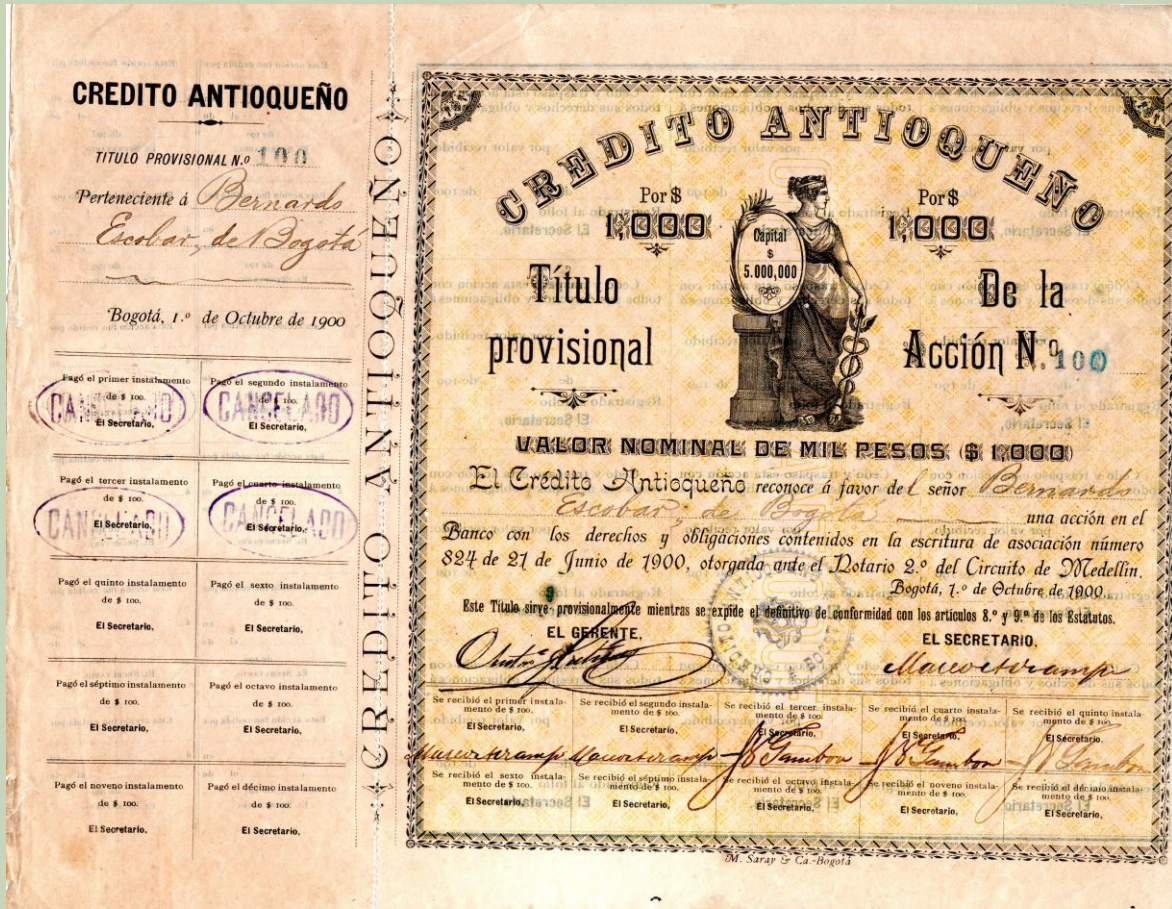 CREDITO ANTIOQUEÑO
TITULO PROVISIONAL N.º 100
Perteneciente á Bernardo
Escobar, de Bogotá
Bogotá, 1.º de Octubre de 1900
Pagó el primer instalamento
de $ 100.
El Secretario,
CANCELADO
Pagó el segundo instalamento
de $ 100.
El Secretario,
CANCELADO
Pagó el tercer instalamento
de $ 100.
El Secretario,
CANCELADO
Pagó el cuarto instalamento
de $ 100.
El Secretario,
CANCELADO
Pagó el quinto instalamento
de $ 100.
El Secretario,
Pagó el sexto instalamento
de $ 100.
El Secretario,
Pagó el séptimo instalamento
de $ 100.
El Secretario,
Pagó el octavo instalamento
de $ 100.
El Secretario,
Pagó el noveno instalamento
de $ 100.
El Secretario,
Pagó el décimo instalamento
de $ 100.
El Secretario,
CREDITO ANTIOQUEÑO
CREDITO ANTIOQUEÑO
Por $
1,000
Por $
1,000
Capital
$
5.000,000
Título
provisional
De la
Acción N.º 100
VALOR NOMINAL DE MIL PESOS ($ 1,000)
El Crédito Antioqueño reconoce á favor del señor Bernardo
Escobar, de Bogotá una acción en el
Banco con los derechos y obligaciones contenidos en la escritura de asociación número
824 de 21 de Junio de 1900, otorgada ante el Notario 2.º del Circuito de Medellín.
Bogotá, 1.º de Octubre de 1900.
Este Título sirve provisionalmente mientras se expide el definitivo de conformidad con los artículos 8.º y 9.º de los Estatutos.
EL GERENTE,
EL SECRETARIO,
Se recibió el primer instala-
mento de $ 100.
El Secretario,
Se recibió el segundo instala-
mento de $ 100.
El Secretario,
Se recibió el tercer instala-
mento de $ 100.
El Secretario,
Se recibió el cuarto instala-
mento de $ 100.
El Secretario,
Se recibió el quinto instala-
mento de $ 100.
El Secretario,
Se recibió el sexto instala-
mento de $ 100.
El Secretario,
Se recibió el séptimo instala-
mento de $ 100.
El Secretario,
Se recibió el octavo instala-
mento de $ 100.
El Secretario,
Se recibió el noveno instala-
mento de $ 100.
El Secretario,
Se recibió el décimo instala-
mento de $ 100.
El Secretario,
M. Saray & Ca.-Bogotá